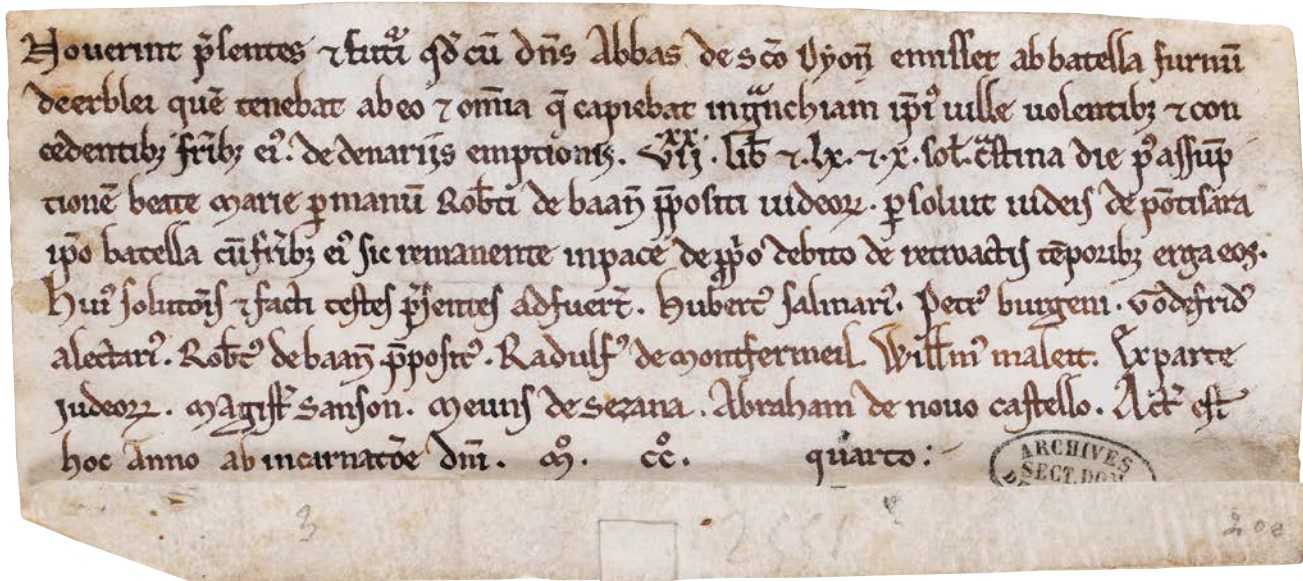 Nouerint p̃sentes ⁊ futuri qd̃ cũ dñs Abbas de sc̃o Dyoñ emisset ab batella furnũ
de erblei quẽ tenebat ab eo ⁊ om̃ia q̃ capiebat in gͣnchiam ip̃iꝰ uille uolentibꝫ ⁊ con
cedentibꝫ fr̃ibꝫ eiꝰ. de denariis emptionis. vijͯͯ. lib̃ ⁊ lx. ⁊ x. sol. cͣstina die pꝰ assũp
tionẽ beate Marie ꝑ manũ Rob̃ti de baañ p̃positi iudeoꝝ. ꝑsoluit iudeis de põtisara
ip̃o batella cũ fr̃ibꝫ eiꝰ sic remanente in pace de ꝓpͥo debito de retroactis tẽporibꝫ erga eos.
Huiꝰ solutõis ⁊ facti testes p̃sentes adfuer̃t. Hubertꝰ salinariꝰ. Petrꝰ burgeni. Godefridꝰ
alectariꝰ. Rob̃tꝰ de baañ p̃positꝰ. Radulfꝰ de Montfermeil. Will̃mꝰ maleit. Ex parte
Iudeoꝝ. Magist̃ Sanson. Meuns de Sezana. Abraham de nouo castello. Act̃ est
hoc Anno ab incarnatõe dñi. Mͦ. ccͦ. quarto:
ARCHIVES
SECT. DOM
3
208